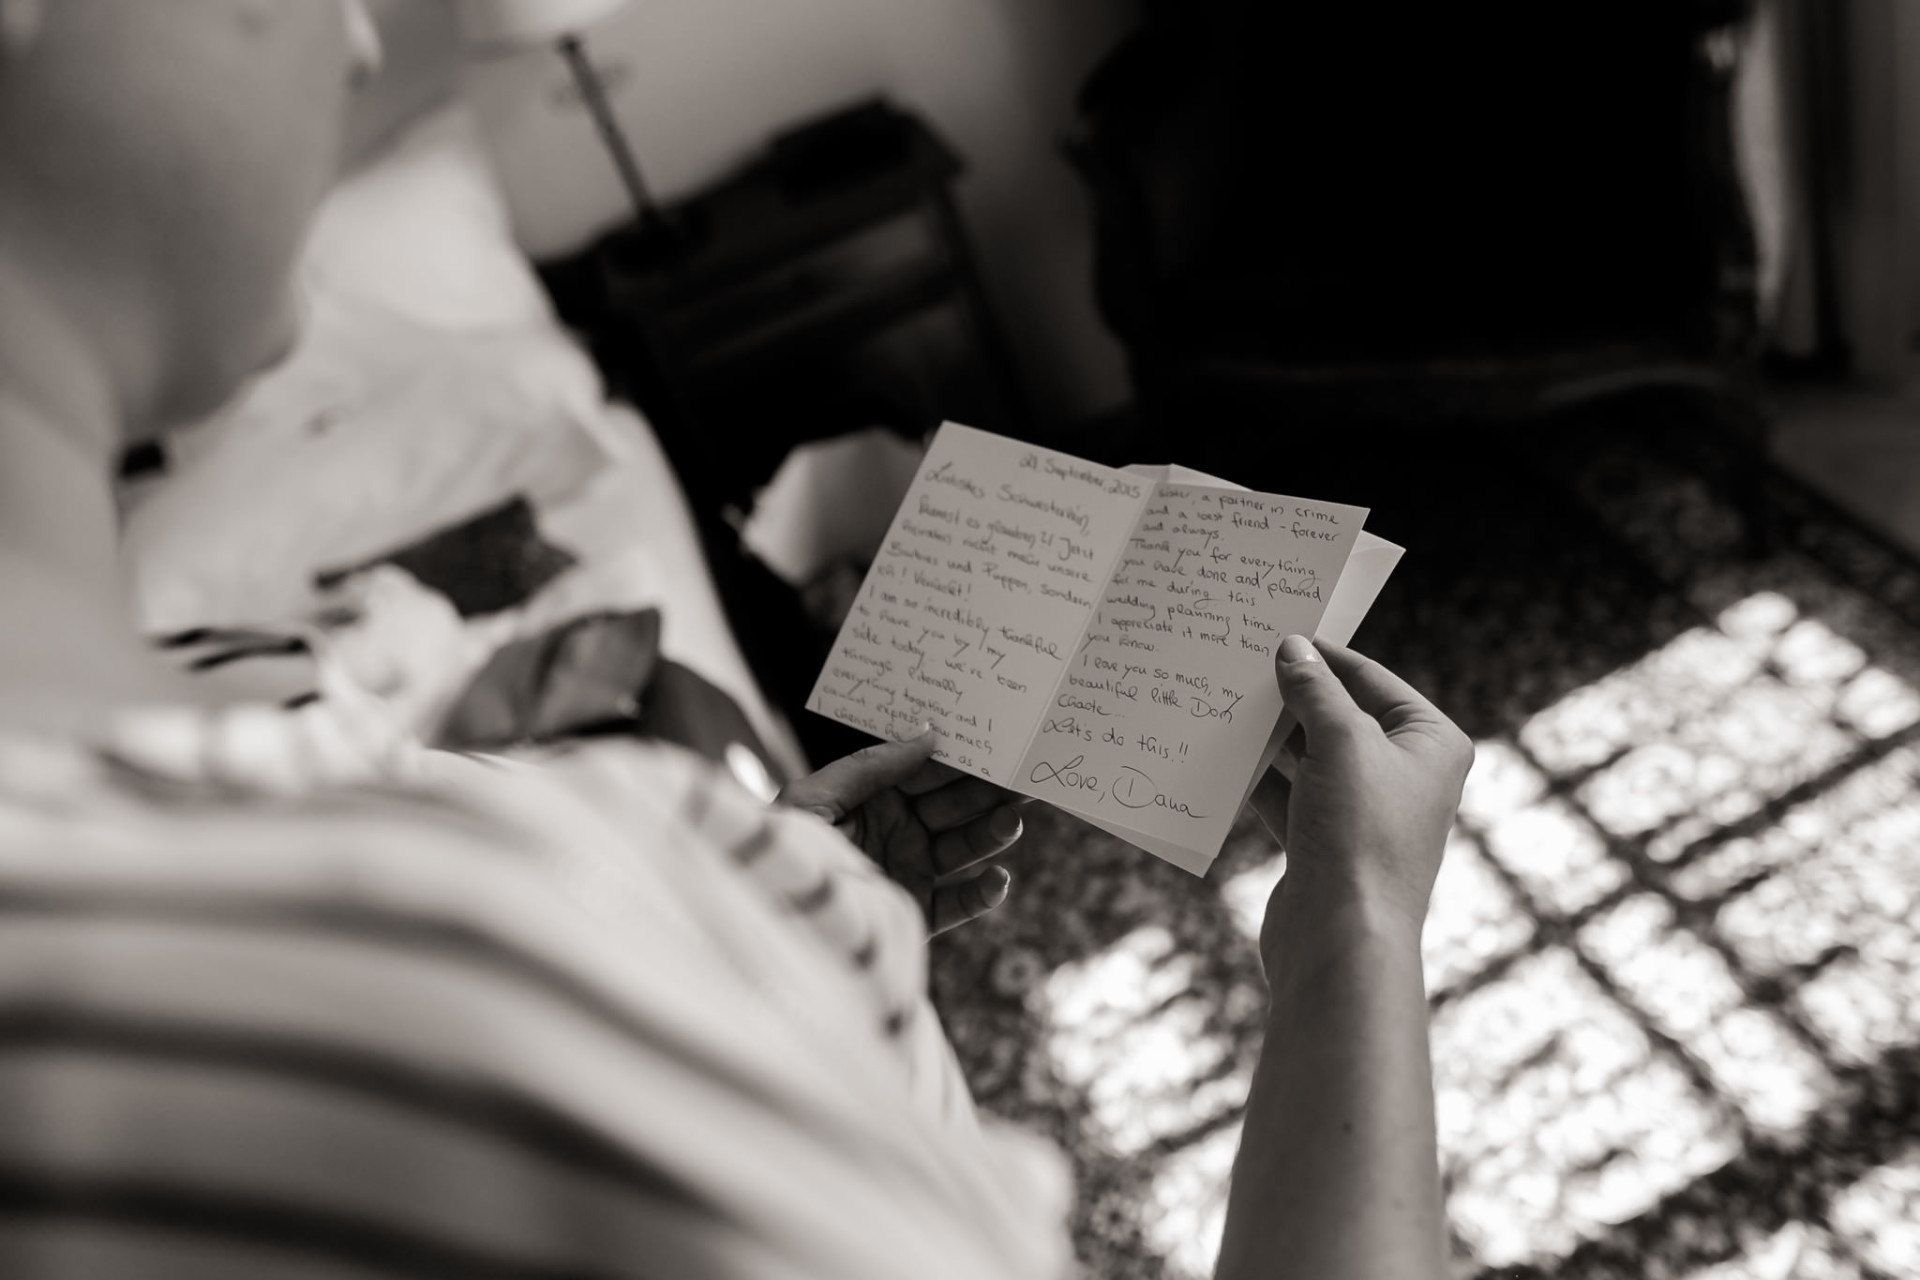 September, 2015
Liebstes Schwesterlein,
Kannst es glauben?! Jetzt
heiraten nicht mehr unsere
Barbies und Puppen, sondern
ich! Verrückt!
I am so incredibly thankful
to have you by my
side today. We've been
through literally
everything together and I
cannot express how much
I cherish you as a
sister, a partner in crime
and a best friend - forever
and always.
Thank you for everything
you have done and planned
for me during this
wedding planning time,
I appreciate it more than
you know.
I love you so much, my
beautiful little
Let's do this!!
Love, Dana